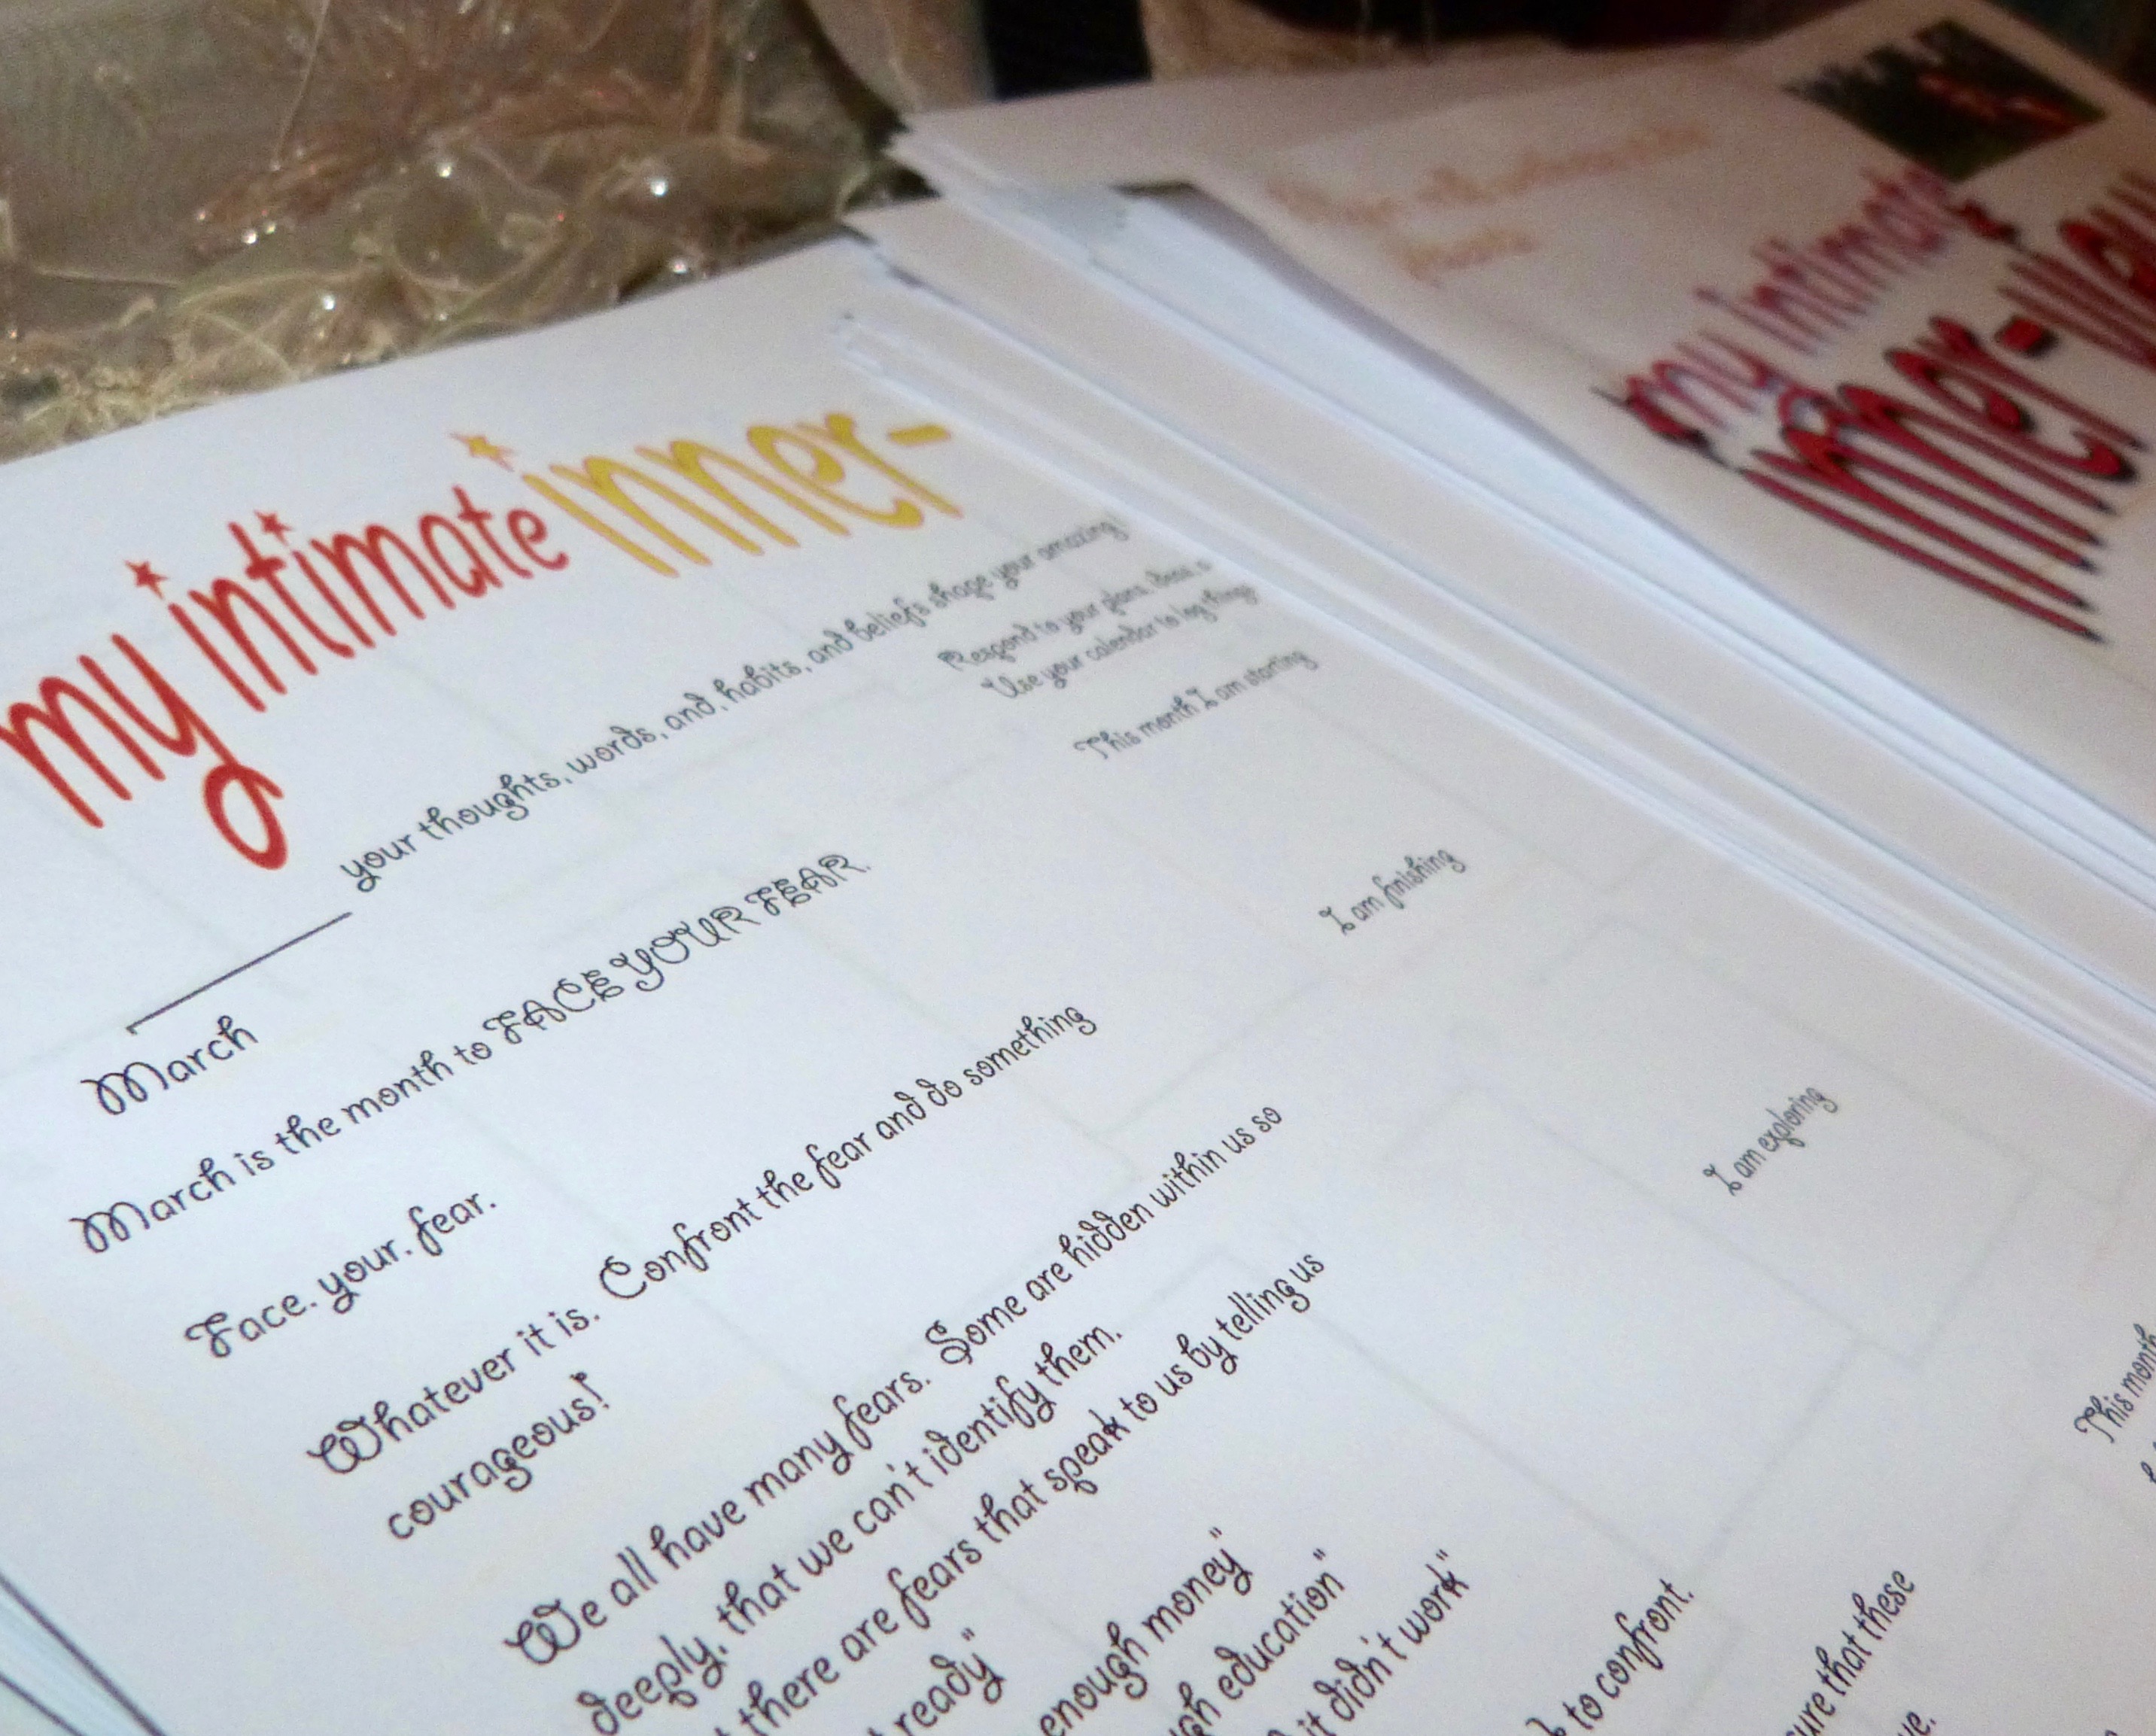 my intimate inner-
your thoughts, words, and, habits, and beliefs shape your amazing
Respond to your plans, ideas
Use your calendar to log things
This month I am starting
I am finishing
I am exploring
This month
March
March is the month to FACE YOUR FEAR.
Face. your. fear.
Whatever it is. Confront the fear and do something
courageous!
We all have many fears. Some are hidden within us so
deeply, that we can't identify them.
there are fears that speak to us by telling us
ready"
enough money"
education"
it didn't work"
to confront.
that these
my intimate
inner-